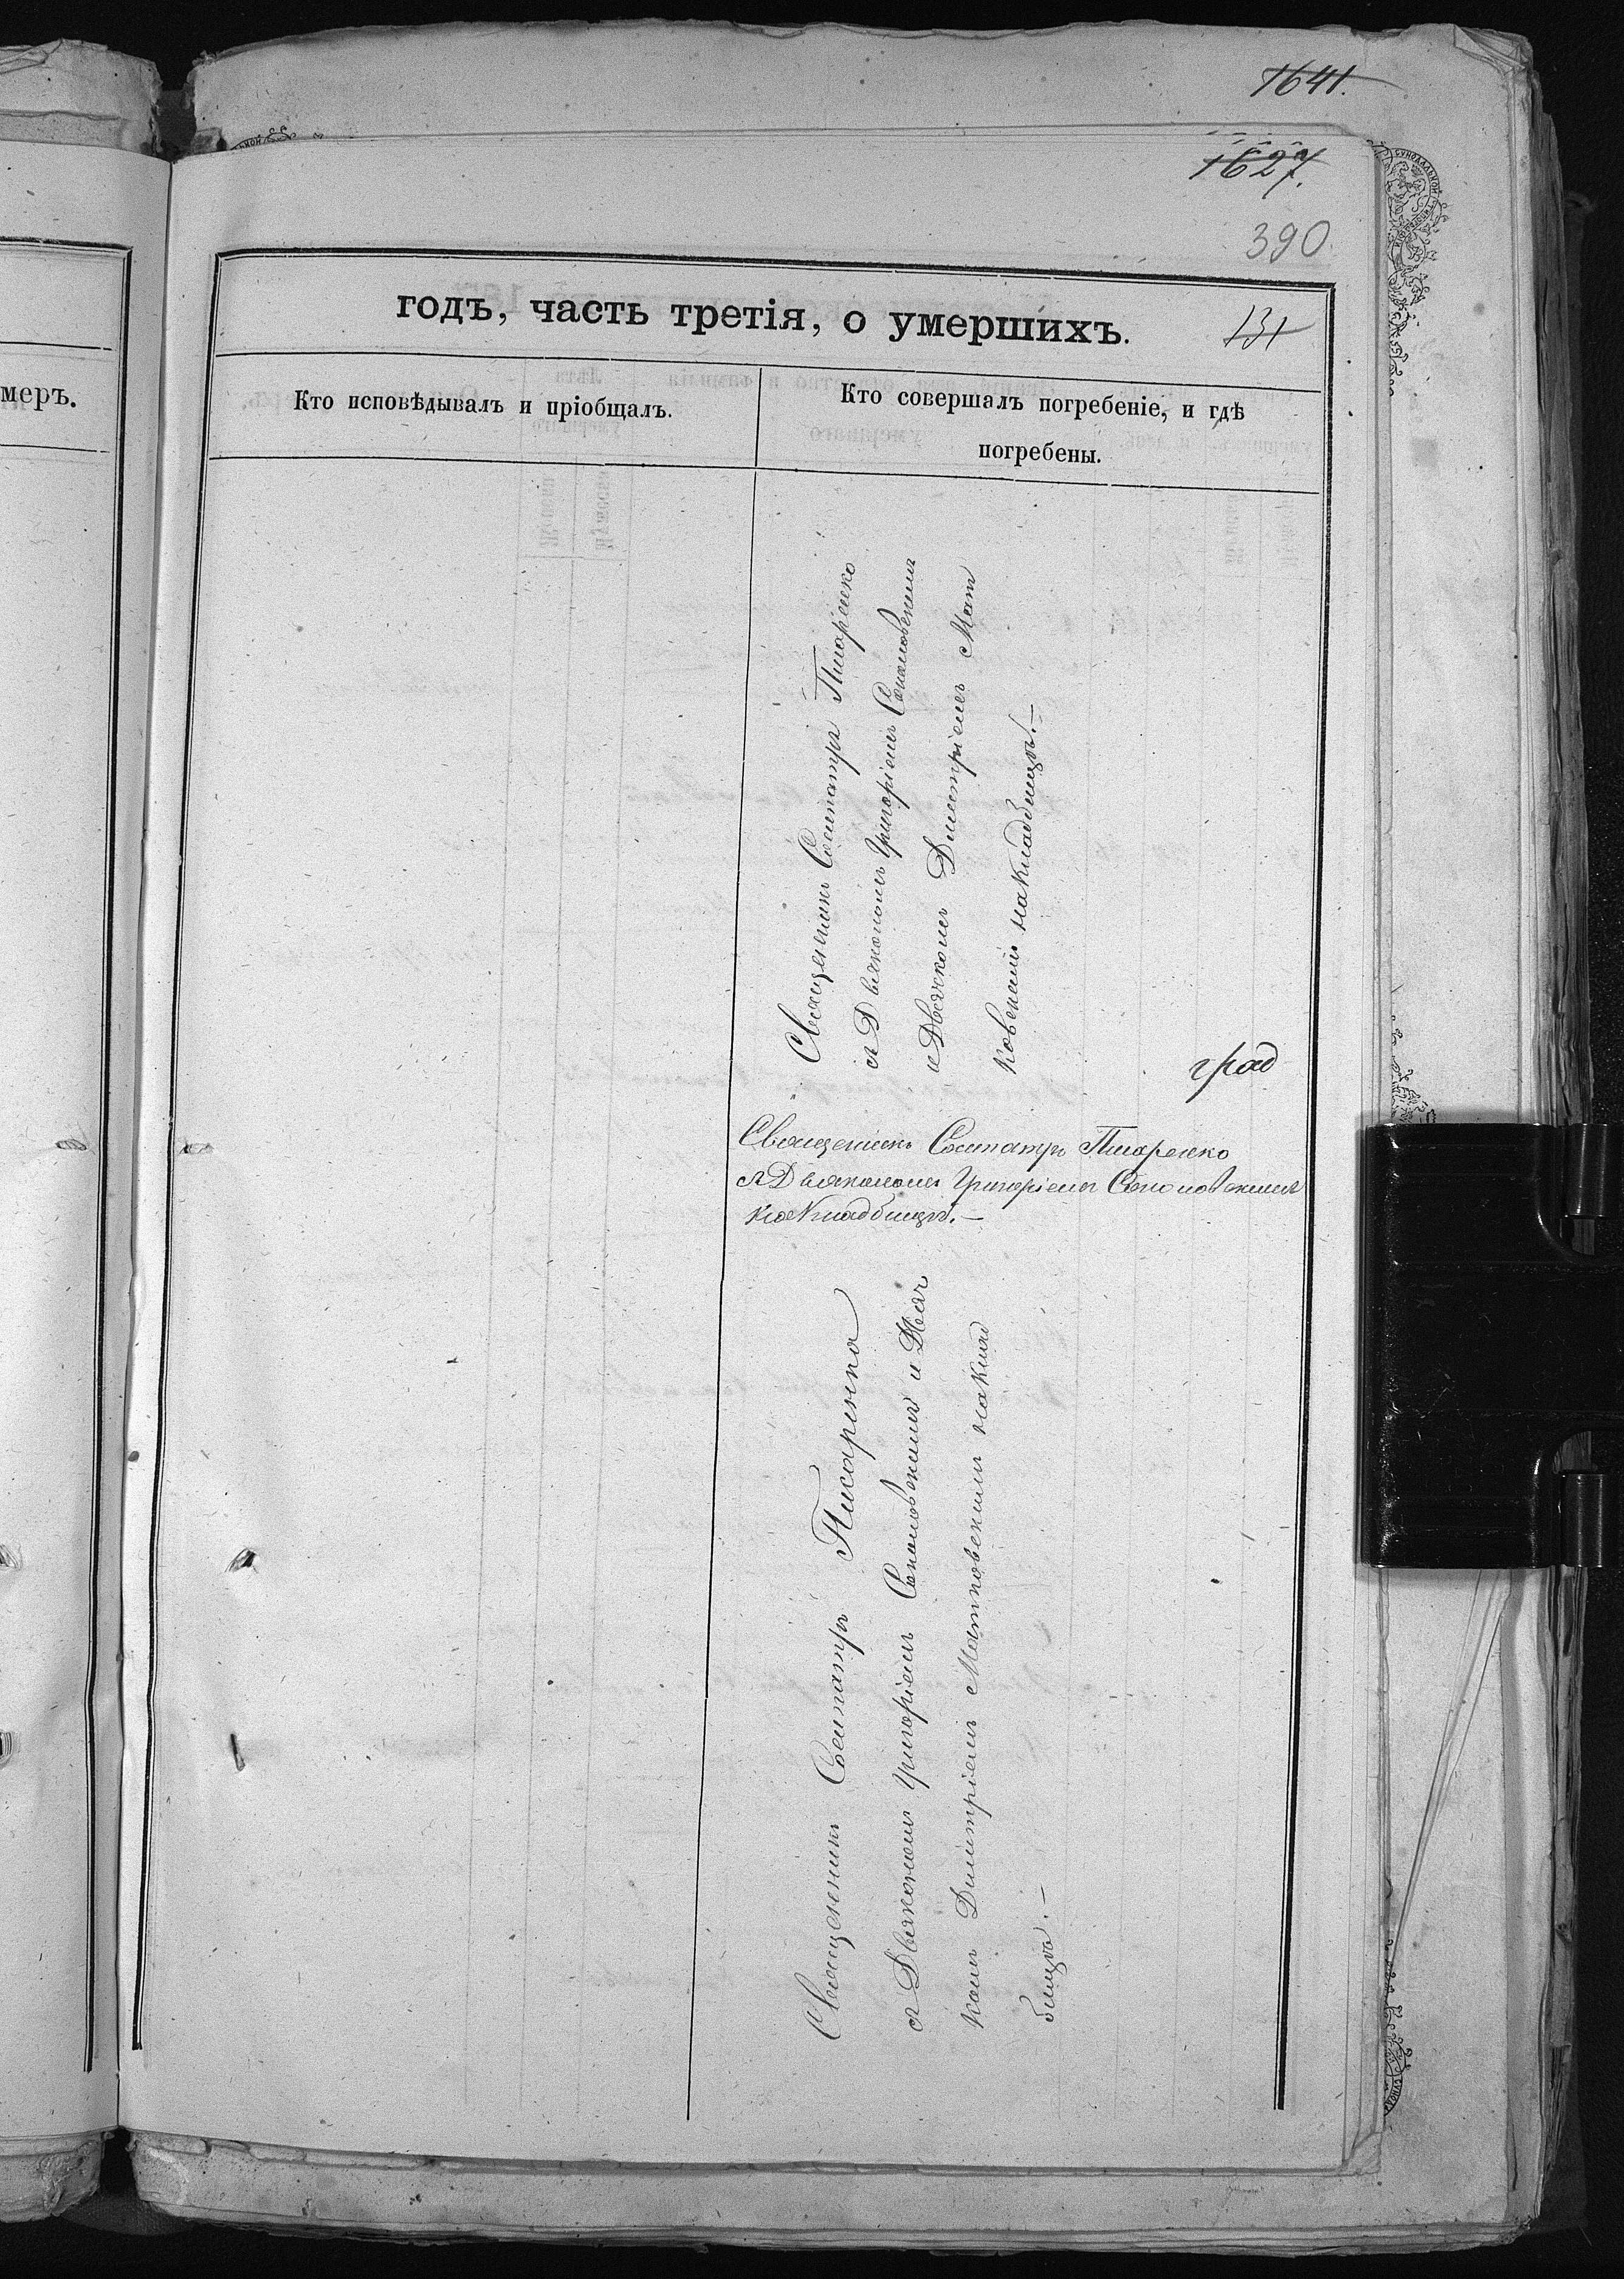 1641.
1627.
390
годъ, часть третія, о умершихъ.
131
меръ.
Кто исповѣдывалъ и пріобщалъ.
Кто совершалъ погребеніе, и гдѣ
погребены.
Священникъ Сосипатръ Писаренко
съ Діякономъ Григоріемъ
и Дьячкомъ Димитріемъ Мат
ковскимъ на кладбищѣ.—
град
Священникъ Сосипатръ Писаренко
съ Діякономъ Григоріемъ
на кладбищѣ.—
Священникъ Сосипатръ Писаренко
съ Діякономъ Григоріемъ и Дьяч
комъ Димитріемъ Матковскимъ на клад
бищѣ.—